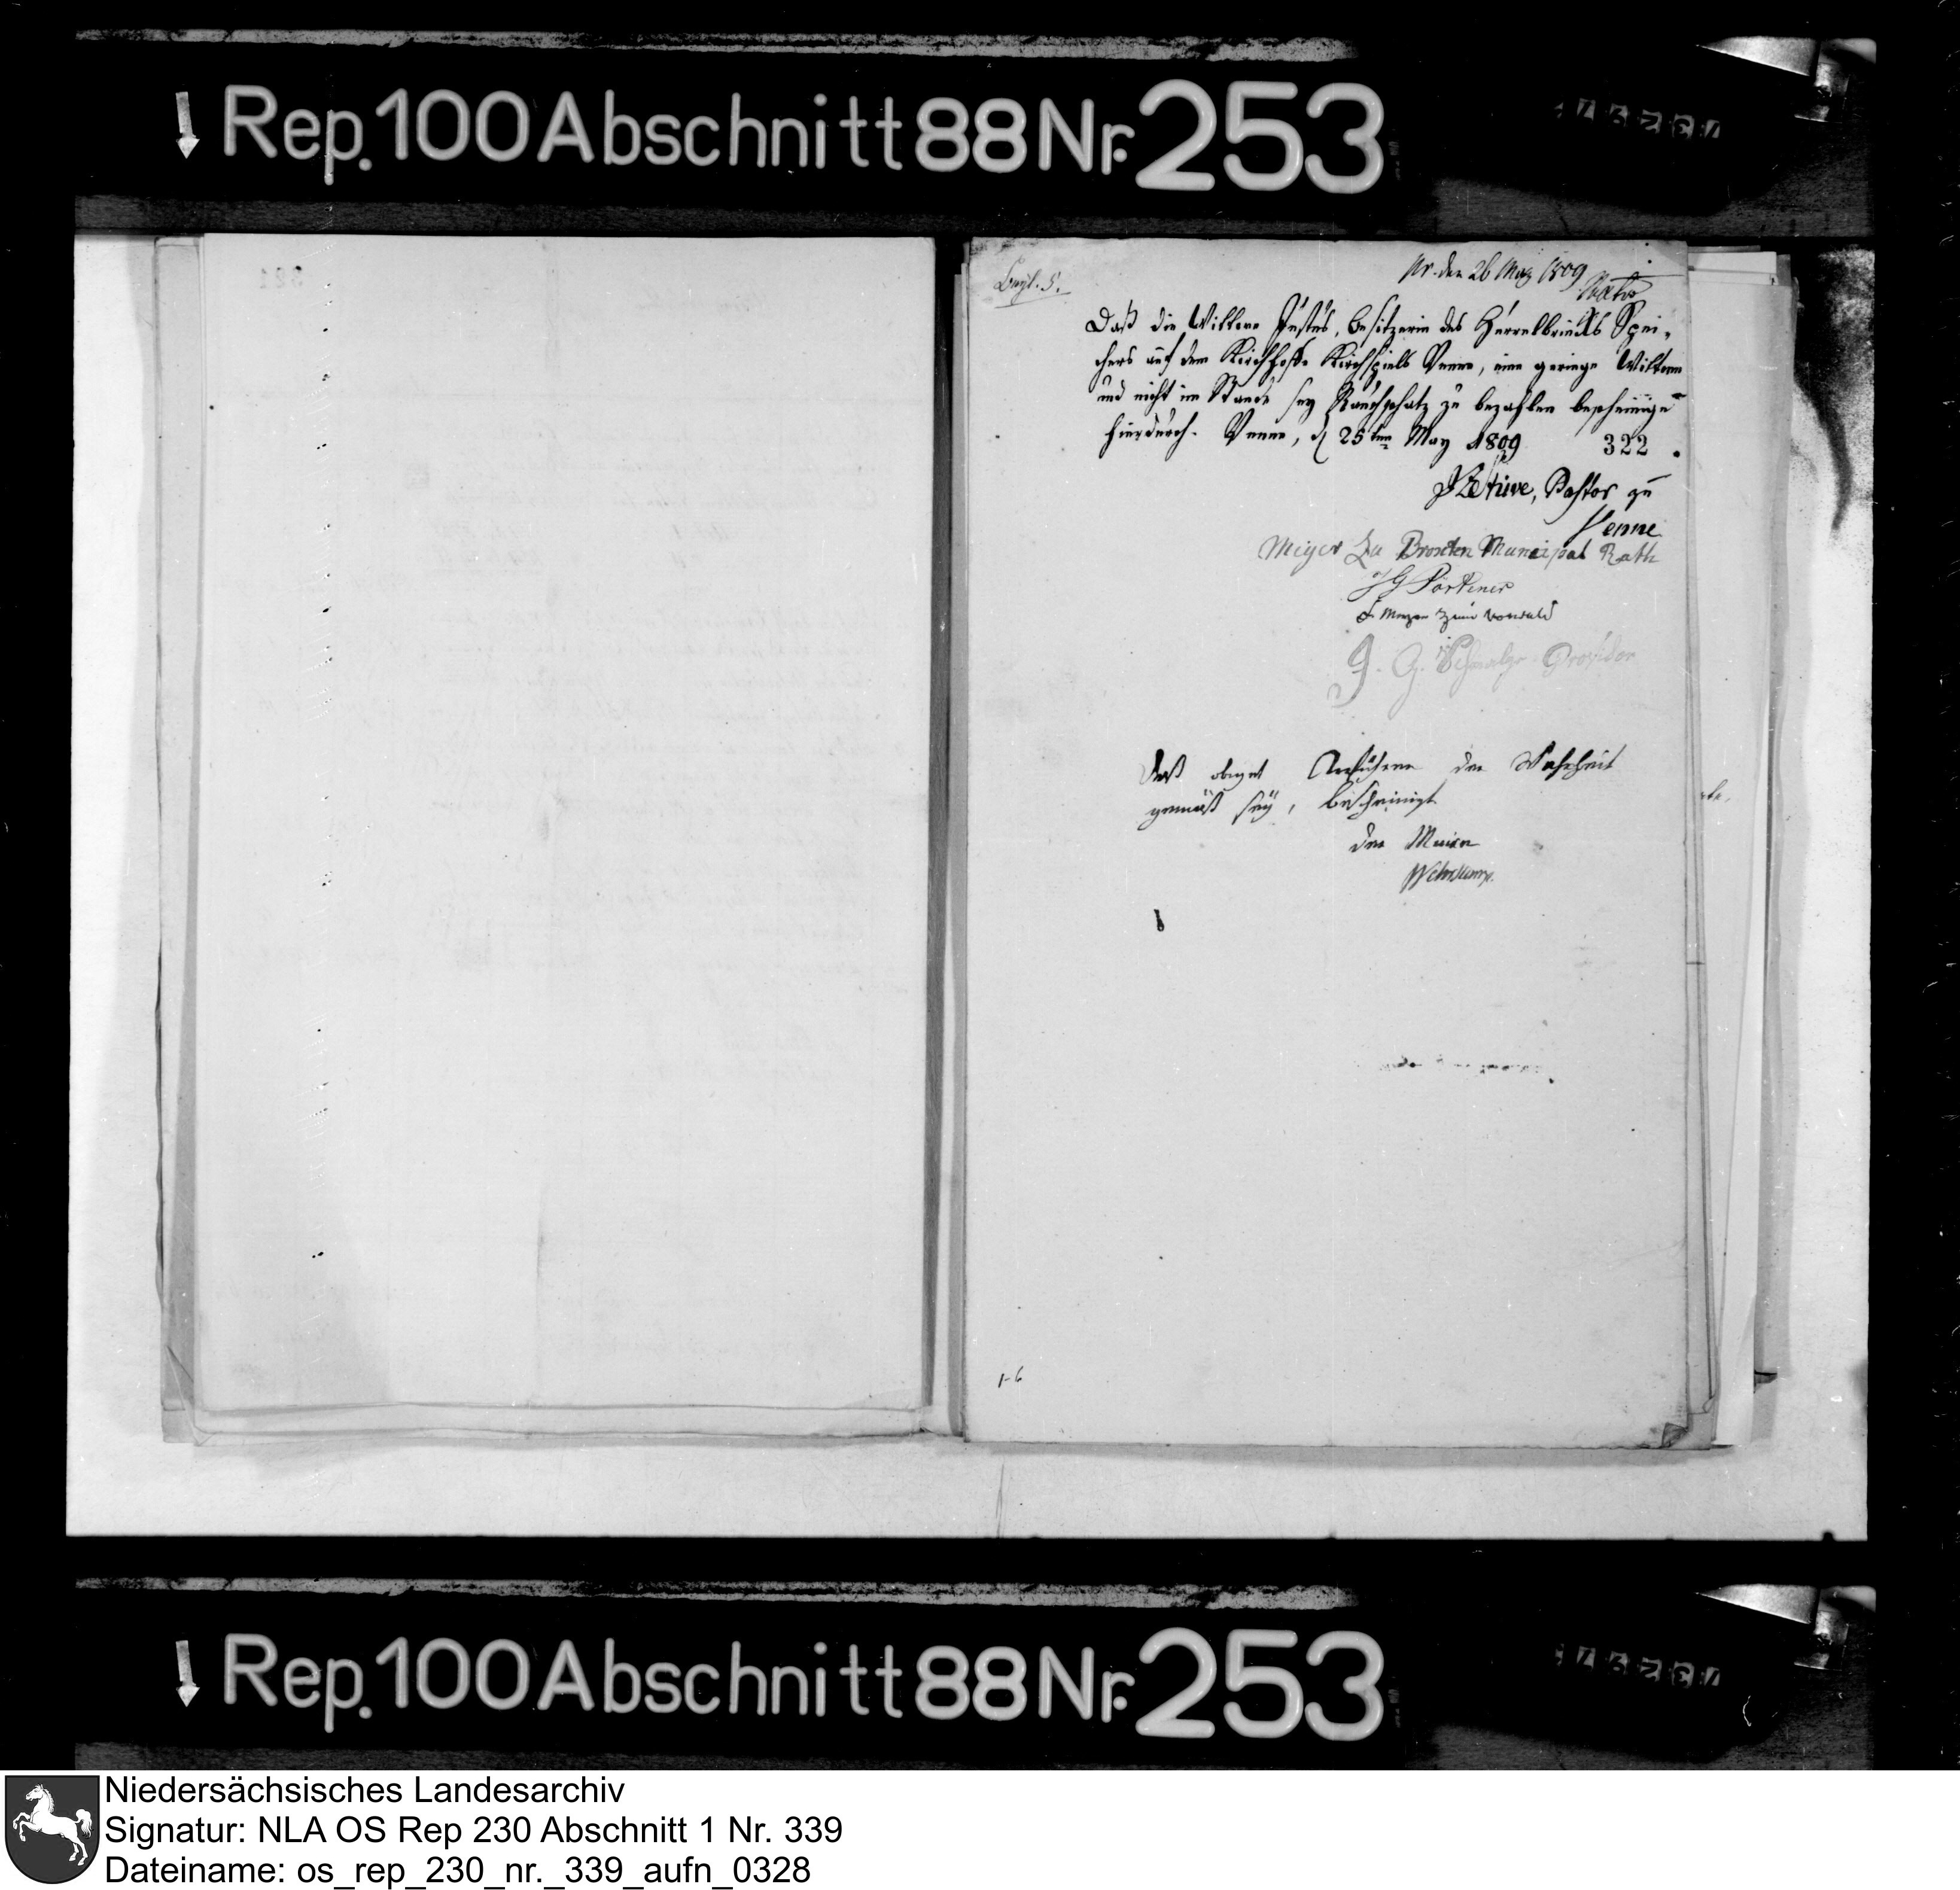 Rep. 100 Abschnitt 88 Nr. 253
Beyl. 5.
pr. den 26 May 1809
Daß die Wittwe Justus, Besitzerin des Herrelbrinks Spei-
chers auf dem Kirchhoffe Kirchspiels Venne, eine geringe Wittwe
und nicht im Stande sey Rauchschatz zu bezahlen bescheinige
hierdurch. Venne, d 25ten May 1809
322
Stüve, Pastor zu
Venne
Meyer Zu Broxten Municipal Rath
JG Portener
Meyer zum Vorwald
J. G. Provisor
Daß obiges Anführen der Wahrheit
gemäß sey, bescheinigt
der Maire
Wehrkamp.
1-6
Rep. 100 Abschnitt 88 Nr. 253
Niedersächsisches Landesarchiv
Signatur: NLA OS Rep 230 Abschnitt 1 Nr. 339
Dateiname: os_rep_230_nr._339_aufn_0328